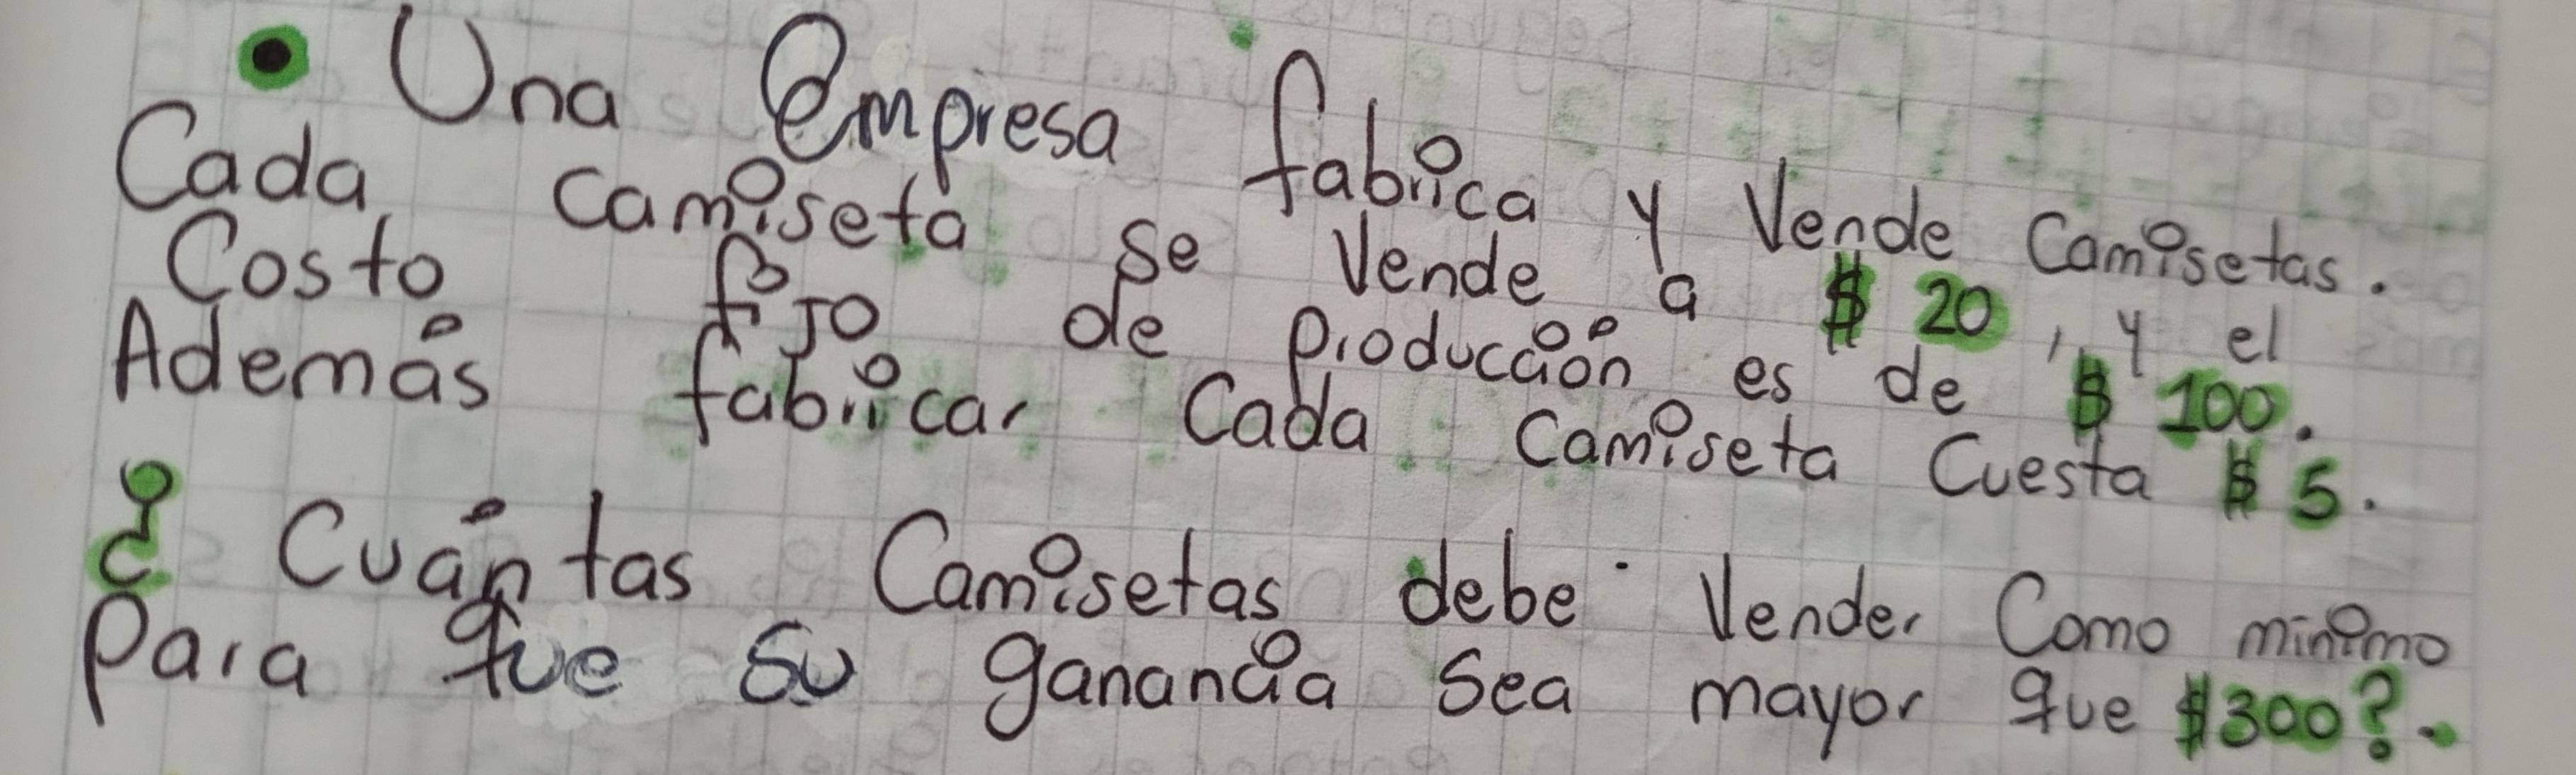 • Una Empresa fabrica y Vende Camisetas.
Cada camiseta se Vende a $ 20, y el
Costo fijo de Producción es de $ 100.
Además fabricar Cada Camiseta Cuesta $ 5.
¿Cuántas Camisetas debe Vender Como mínimo
Para que su ganancia Sea mayor que $300?.